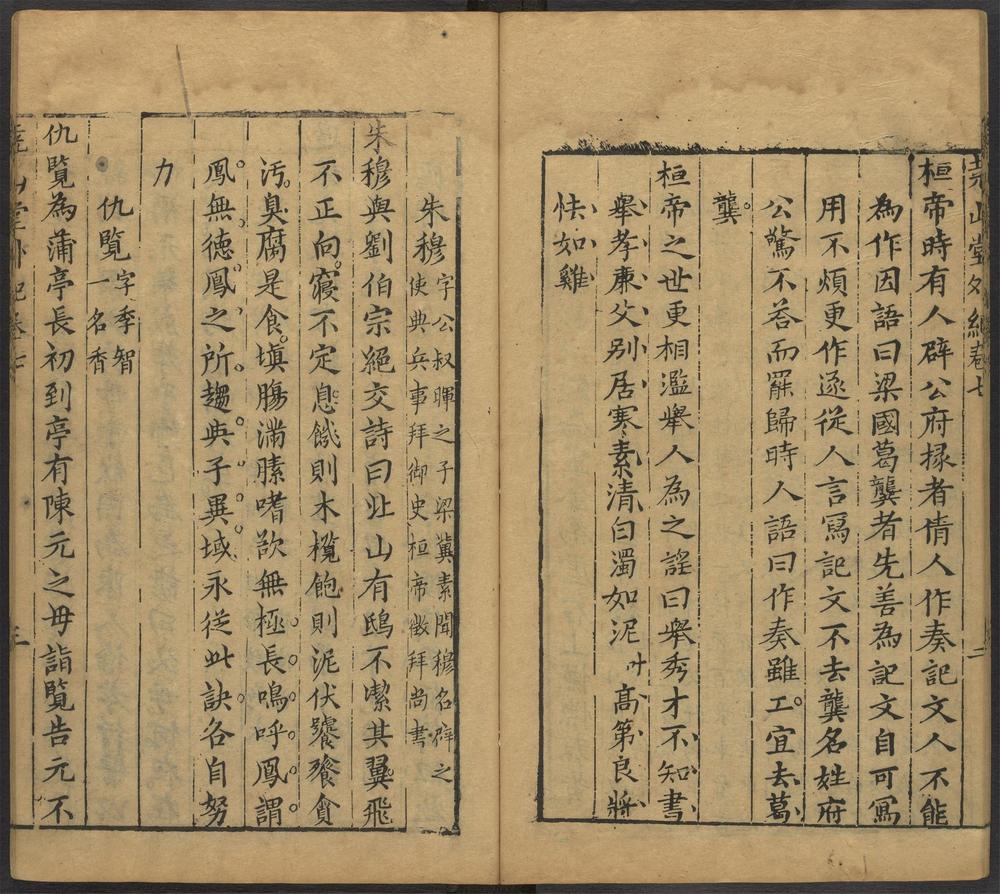 堯山堂外紀卷七 二
桓帝時有人辟公府掾者倩人作奏記文人不能
為作因語曰梁國葛龔者先善為記文自可寫
用不煩更作遂從人言寫記文不去龔名姓府
公驚不荅而罷歸時人語曰作奏雖工宜去葛
龔
桓帝之世更相濫舉人為之謠曰舉秀才不知書
舉孝廉父别居寒素清白濁如泥叶高第良將
怯如雞
朱穆字公叔暉之子梁冀素聞穆名辟之
使典兵事拜御史桓帝徵拜尚書
朱穆與劉伯宗絕交詩曰北山有鴟不潔其翼飛
不正向寢不定息饑則木欖飽則泥伏饕餮貪
汚臭腐是食塡腸滿膆嗜欲無極長鳴呼鳳謂
鳳無德鳳之所趨與子異域永從此訣各自努
力
仇覽字季智
一名香
仇覽為蒲亭長初到亭有陳元之母詣覽告元不
堯山堂外紀卷七 三